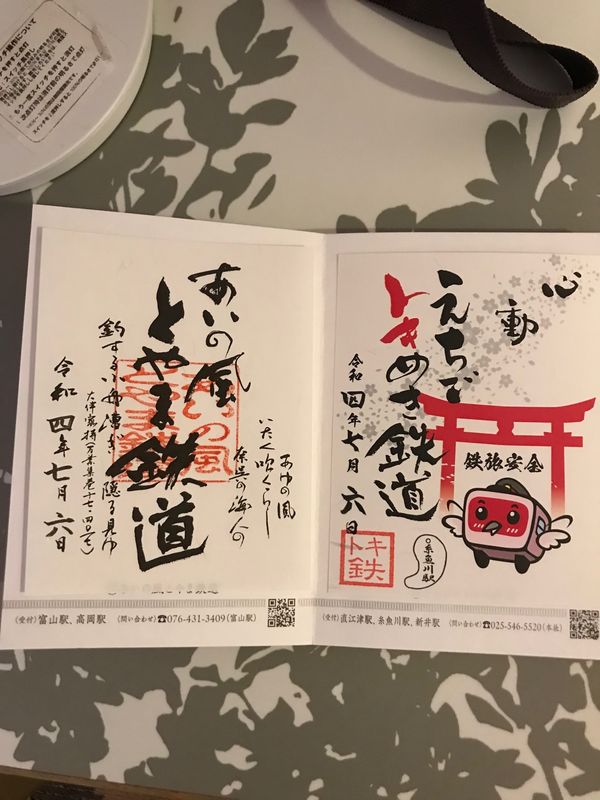 もう一度スイッチを押すと消灯
あいの風
とやま鉄道
あゆの風
いたく吹くらし
奈呉の海人の
釣する小舟漕ぎ隠る見ゆ
大伴家持(万葉集巻十七・四〇一七)
令和四年七月六日
(受付)富山駅、高岡駅 (問い合わせ)☎076-431-3409(富山駅)
心動
えちご
トキめき鉄道
令和四年七月六日
鉄旅安全
トキ
鉄
糸魚川駅
(受付)直江津駅、糸魚川駅、新井駅 (問い合わせ)☎025-546-5520(本社)